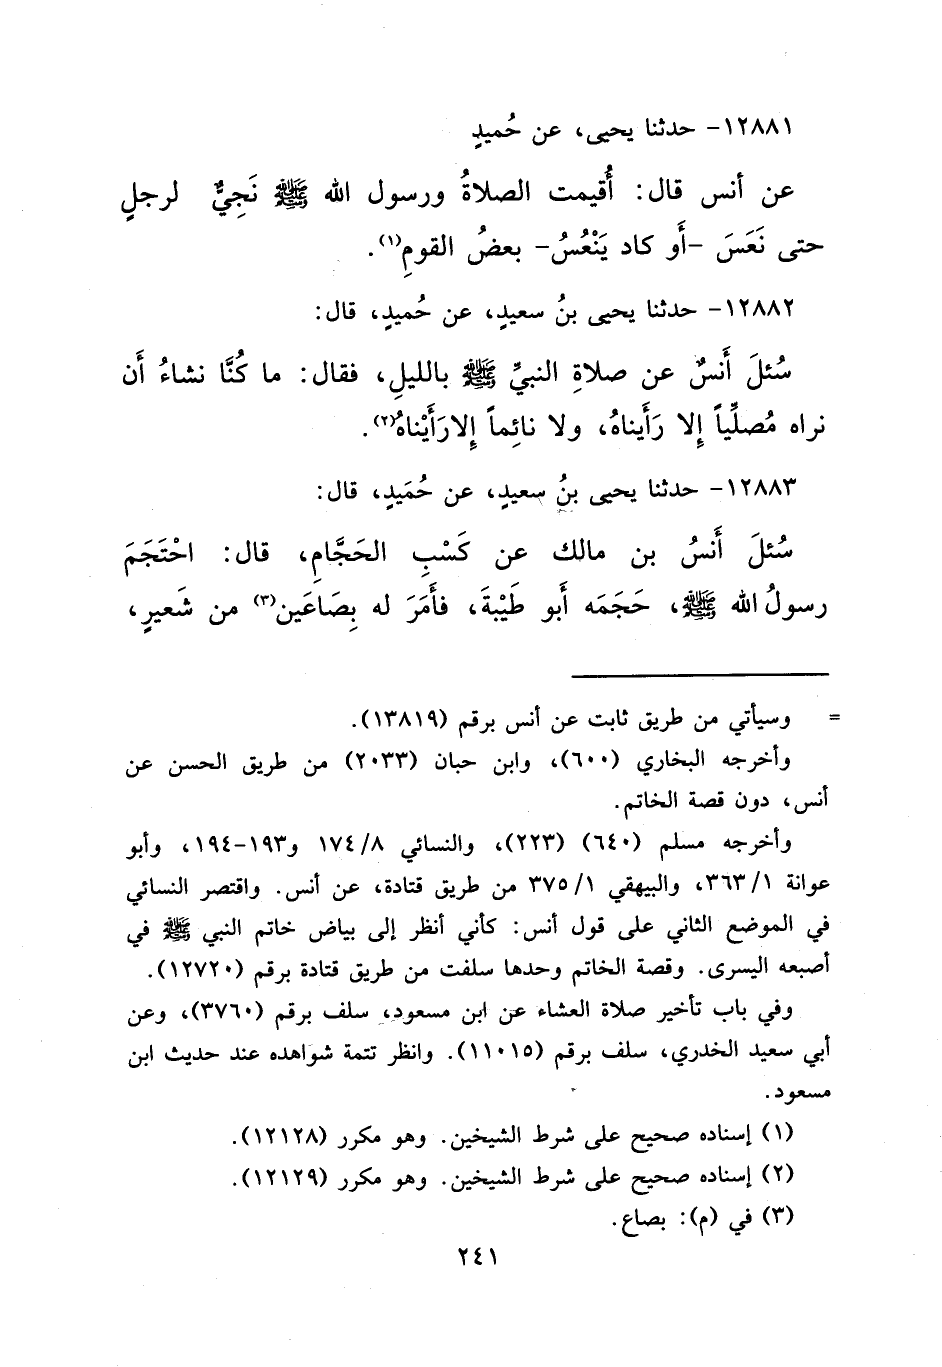 ١٢٨٨١- حدثنا يحيى، عن حُميدٍ
عن أنس قال: أُقيمت الصلاةُ ورسول الله ﷺ نَجِيٌّ لرجلٍ
حتى نَعَسَ -أَو كاد يَنْعُسُ- بعضُ القومِ(١).
١٢٨٨٢- حدثنا يحيى بنُ سعيدٍ، عن حُميدٍ، قال:
سُئلَ أَنسٌ عن صلاةِ النبيِّ ﷺ بالليلِ، فقال: ما كُنَّا نشاءُ أَن
نراه مُصلِّياً إِلا رَأَيناهُ، ولا نائِماً إِلارَأَيْناهُ(٢).
١٢٨٨٣- حدثنا يحيى بنُ سعيدٍ، عن حُمَيدٍ، قال:
سُئلَ أَنسُ بن مالك عن كَسْبِ الحَجَّامِ، قال: احْتَجَمَ
رسولُ الله ﷺ، حَجَمَه أَبو طَيْبَةَ، فأَمَرَ له بِصَاعَين(٣) من شَعيرٍ،
= وسيأتي من طريق ثابت عن أنس برقم (١٣٨١٩).
وأخرجه البخاري (٦٠٠)، وابن حبان (٢٠٣٣) من طريق الحسن عن
أنس، دون قصة الخاتم.
وأخرجه مسلم (٦٤٠) (٢٢٣)، والنسائي ١٧٤/٨ و١٩٣-١٩٤، وأبو
عوانة ٣٦٣/١، والبيهقي ٣٧٥/١ من طريق قتادة، عن أنس. واقتصر النسائي
في الموضع الثاني على قول أنس: كأني أنظر إلى بياض خاتم النبي ﷺ في
أصبعه اليسرى. وقصة الخاتم وحدها سلفت من طريق قتادة برقم (١٢٧٢٠).
وفي باب تأخير صلاة العشاء عن ابن مسعود، سلف برقم (٣٧٦٠)، وعن
أبي سعيد الخدري، سلف برقم (١١٠١٥). وانظر تتمة شواهده عند حديث ابن
مسعود.
(١) إسناده صحيح على شرط الشيخين. وهو مكرر (١٢١٢٨).
(٢) إسناده صحيح على شرط الشيخين. وهو مكرر (١٢١٢٩).
(٣) في (م): بصاع.
٢٤١